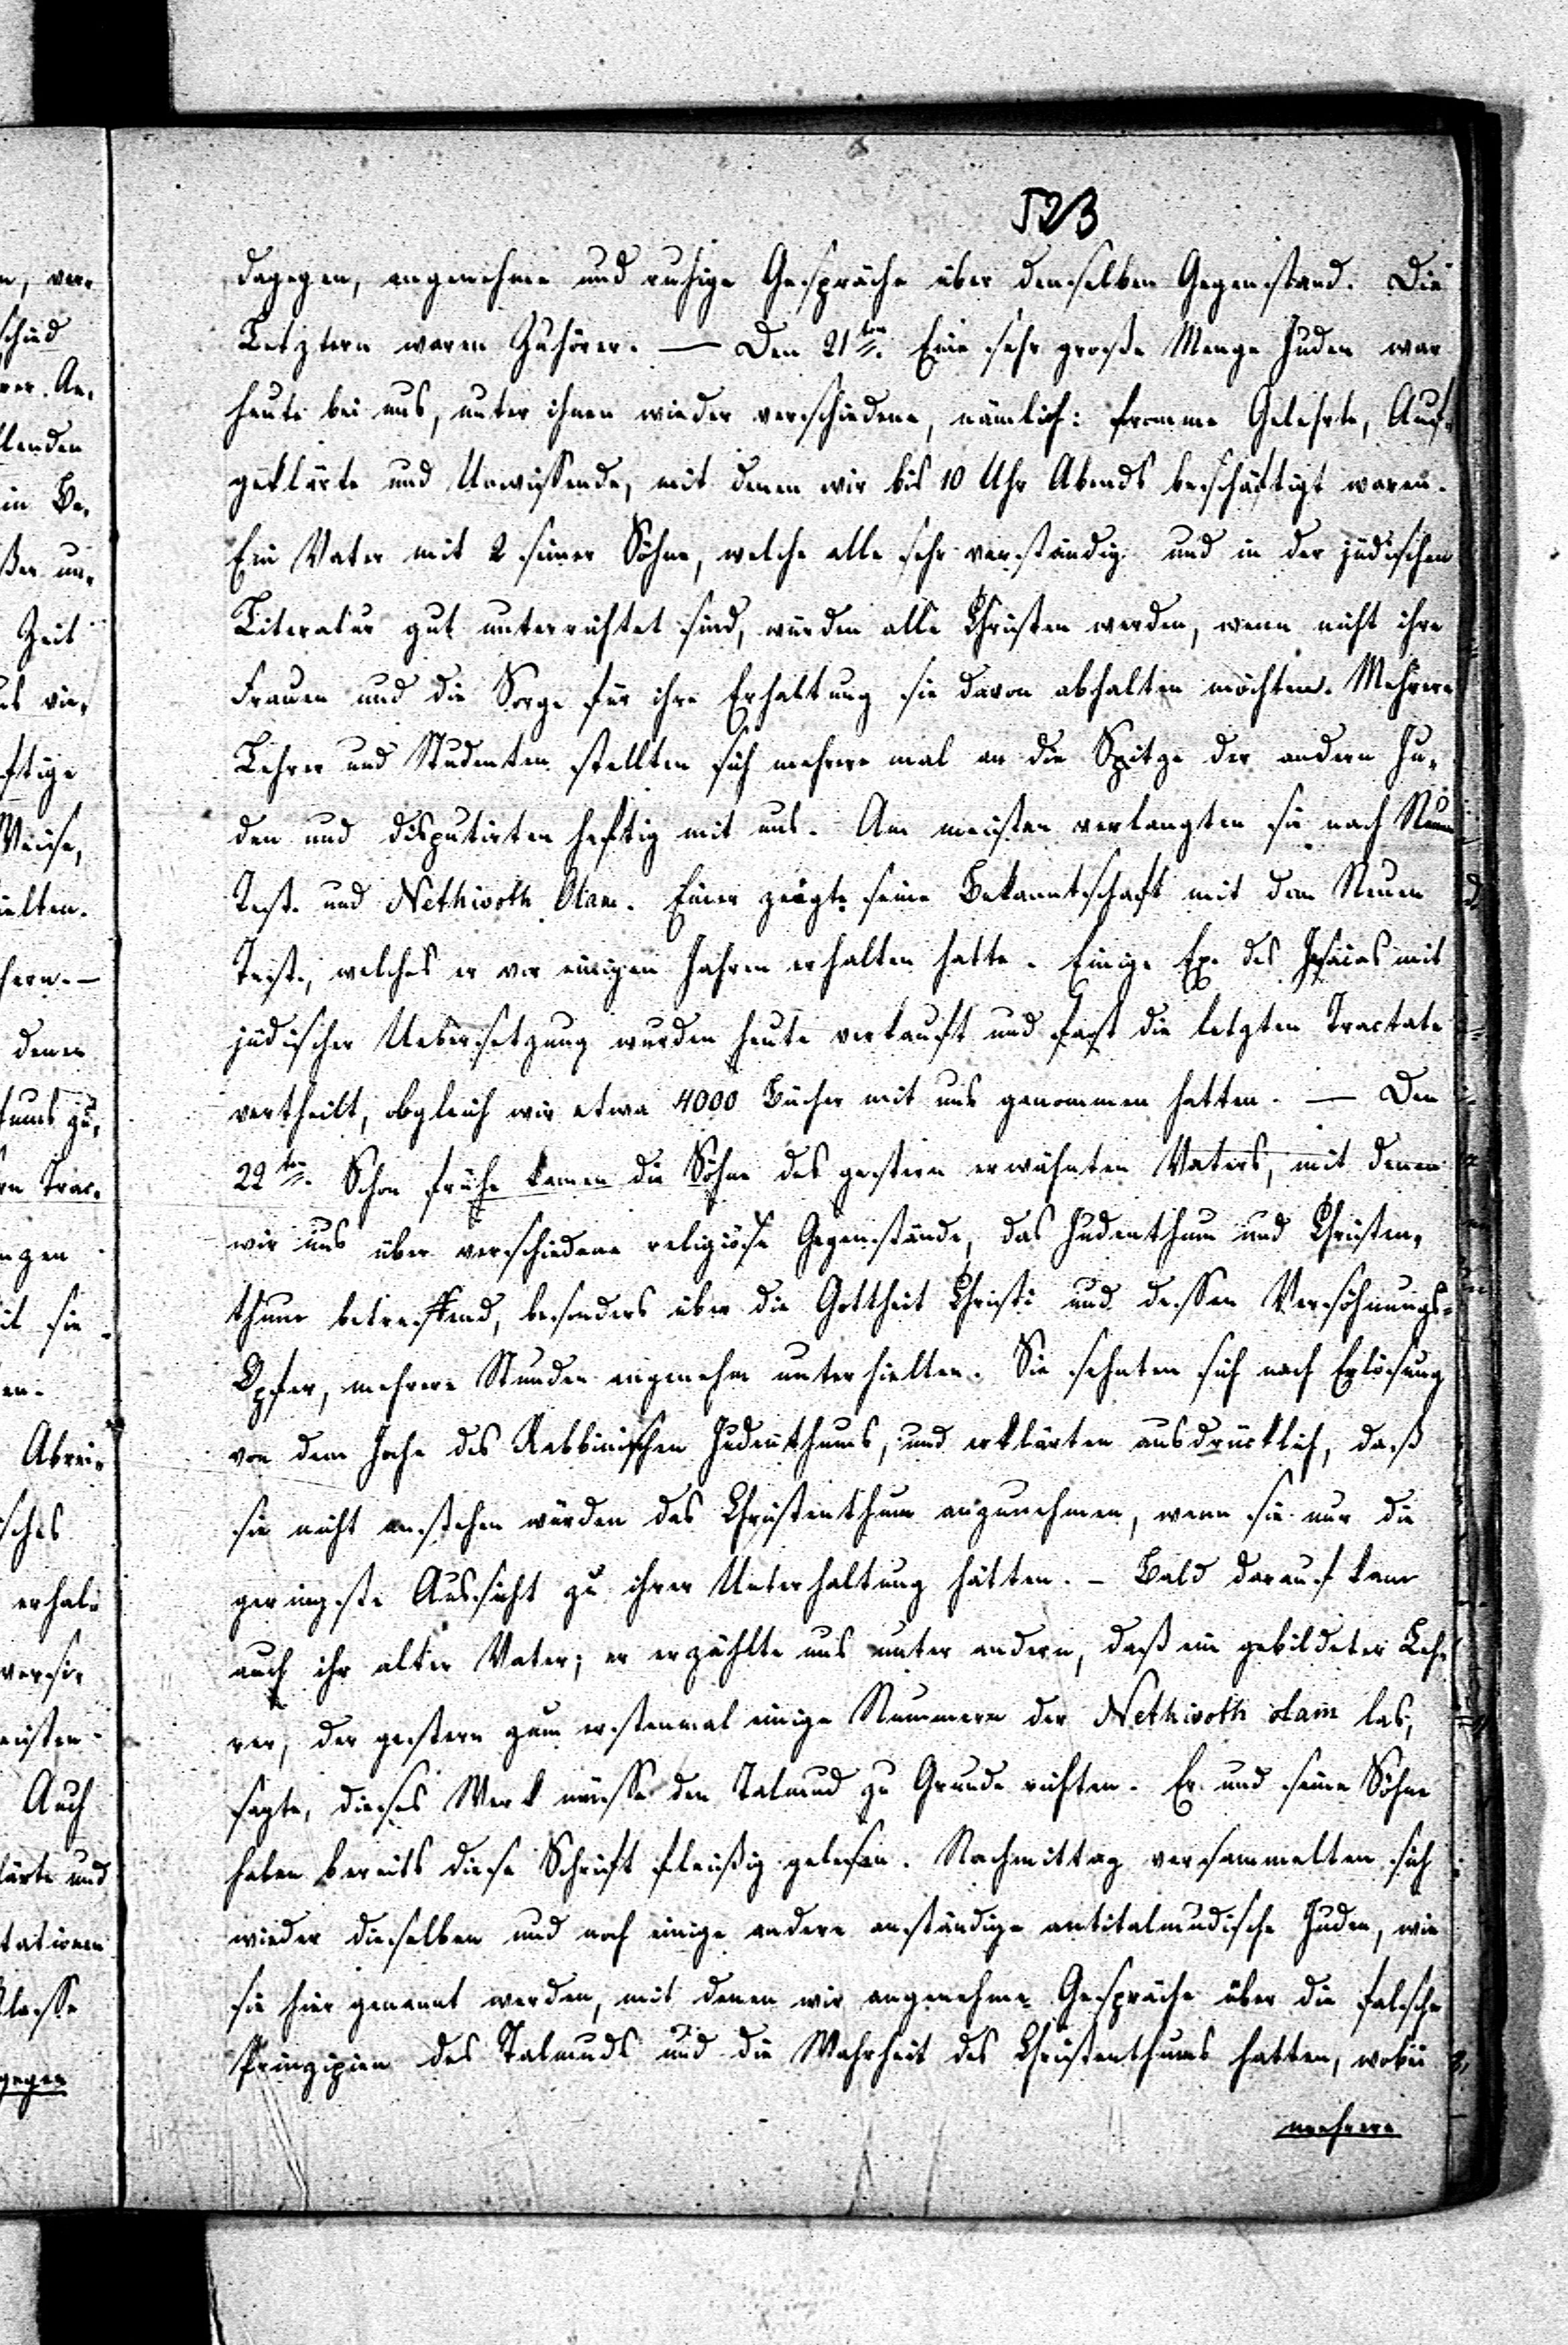 523
dagegen, angenehme und ruhige Gespräche über denselben Gegenstand. Die
Letztern waren Zuhörer. — Den 21ten. Eine sehr große Menge Juden war
heute bei uns, unter ihnen wieder verschiedene, nämlich: fromme Gelehrte, Auf-
geklärte und Unwissende, mit denen wir bis 10 Uhr Abends beschäftigt waren.
Ein Vater mit 2 seiner Söhne, welche alle sehr verständig und in der jüdischen
Literatur gut unterrichtet sind, würden alle Christen werden, wenn nicht ihre
Frauen und die Sorge für ihre Erhaltung sie davon abhalten möchten. Mehrere
Lehrer und Studenten stellten sich mehrere mal an die Spitze der andern Ju-
den und disputirten heftig mit uns. Am meisten verlangten sie nach Neuen
Test. und Nethivoth Olam. Einer zeigte seine Bekanntschaft mit dem Neuen
Test., welches er vor einigen Jahren erhalten hatte. Einige Ex. des Jesaias mit
jüdischer Uebersetzung wurden heute verkauft und fast die letzten Tractate
vertheilt, obgleich wir etwa 4000 Bücher mit uns genommen hatten. — Den
22ten. Schon frühe kamen die Söhne des gestern erwähnten Vaters, mit denen
wir uns über verschiedene religiöse Gegenstände, das Judenthum und Christen-
thum betreffend, besonders über die Gottheit Christi und dessen Versöhnungs-
Opfer, mehrere Stunden angenehm unterhielten. Sie sehnten sich nach Erlösung
von dem Joche des Rabbinischen Judenthums, und erklärten ausdrücklich, daß
sie nicht anstehen würden das Christenthum anzunehmen, wenn sie nur die
geringste Aussicht zu ihrer Unterhaltung hätten. – Bald darauf kam
auch ihr alter Vater; er erzählte uns unter andern, daß ein gebildeter Leh-
rer, der gestern zum erstenmal einige Nummern der Nethivoth olam las,
sagte, dieses Werk müsse den Talmud zu Grunde richten. Er und seine Söhne
haben bereits diese Schrift fleißig gelesen. Nachmittag versammelten sich
wieder dieselben und noch einige andere anständige antitalmudische Juden, wie
sie hier genannt werden, mit denen wir angenehme Gespräche über die falsche
Prinzipien des Talmuds und die Wahrheit des Christenthums hatten, wobei
mehrere